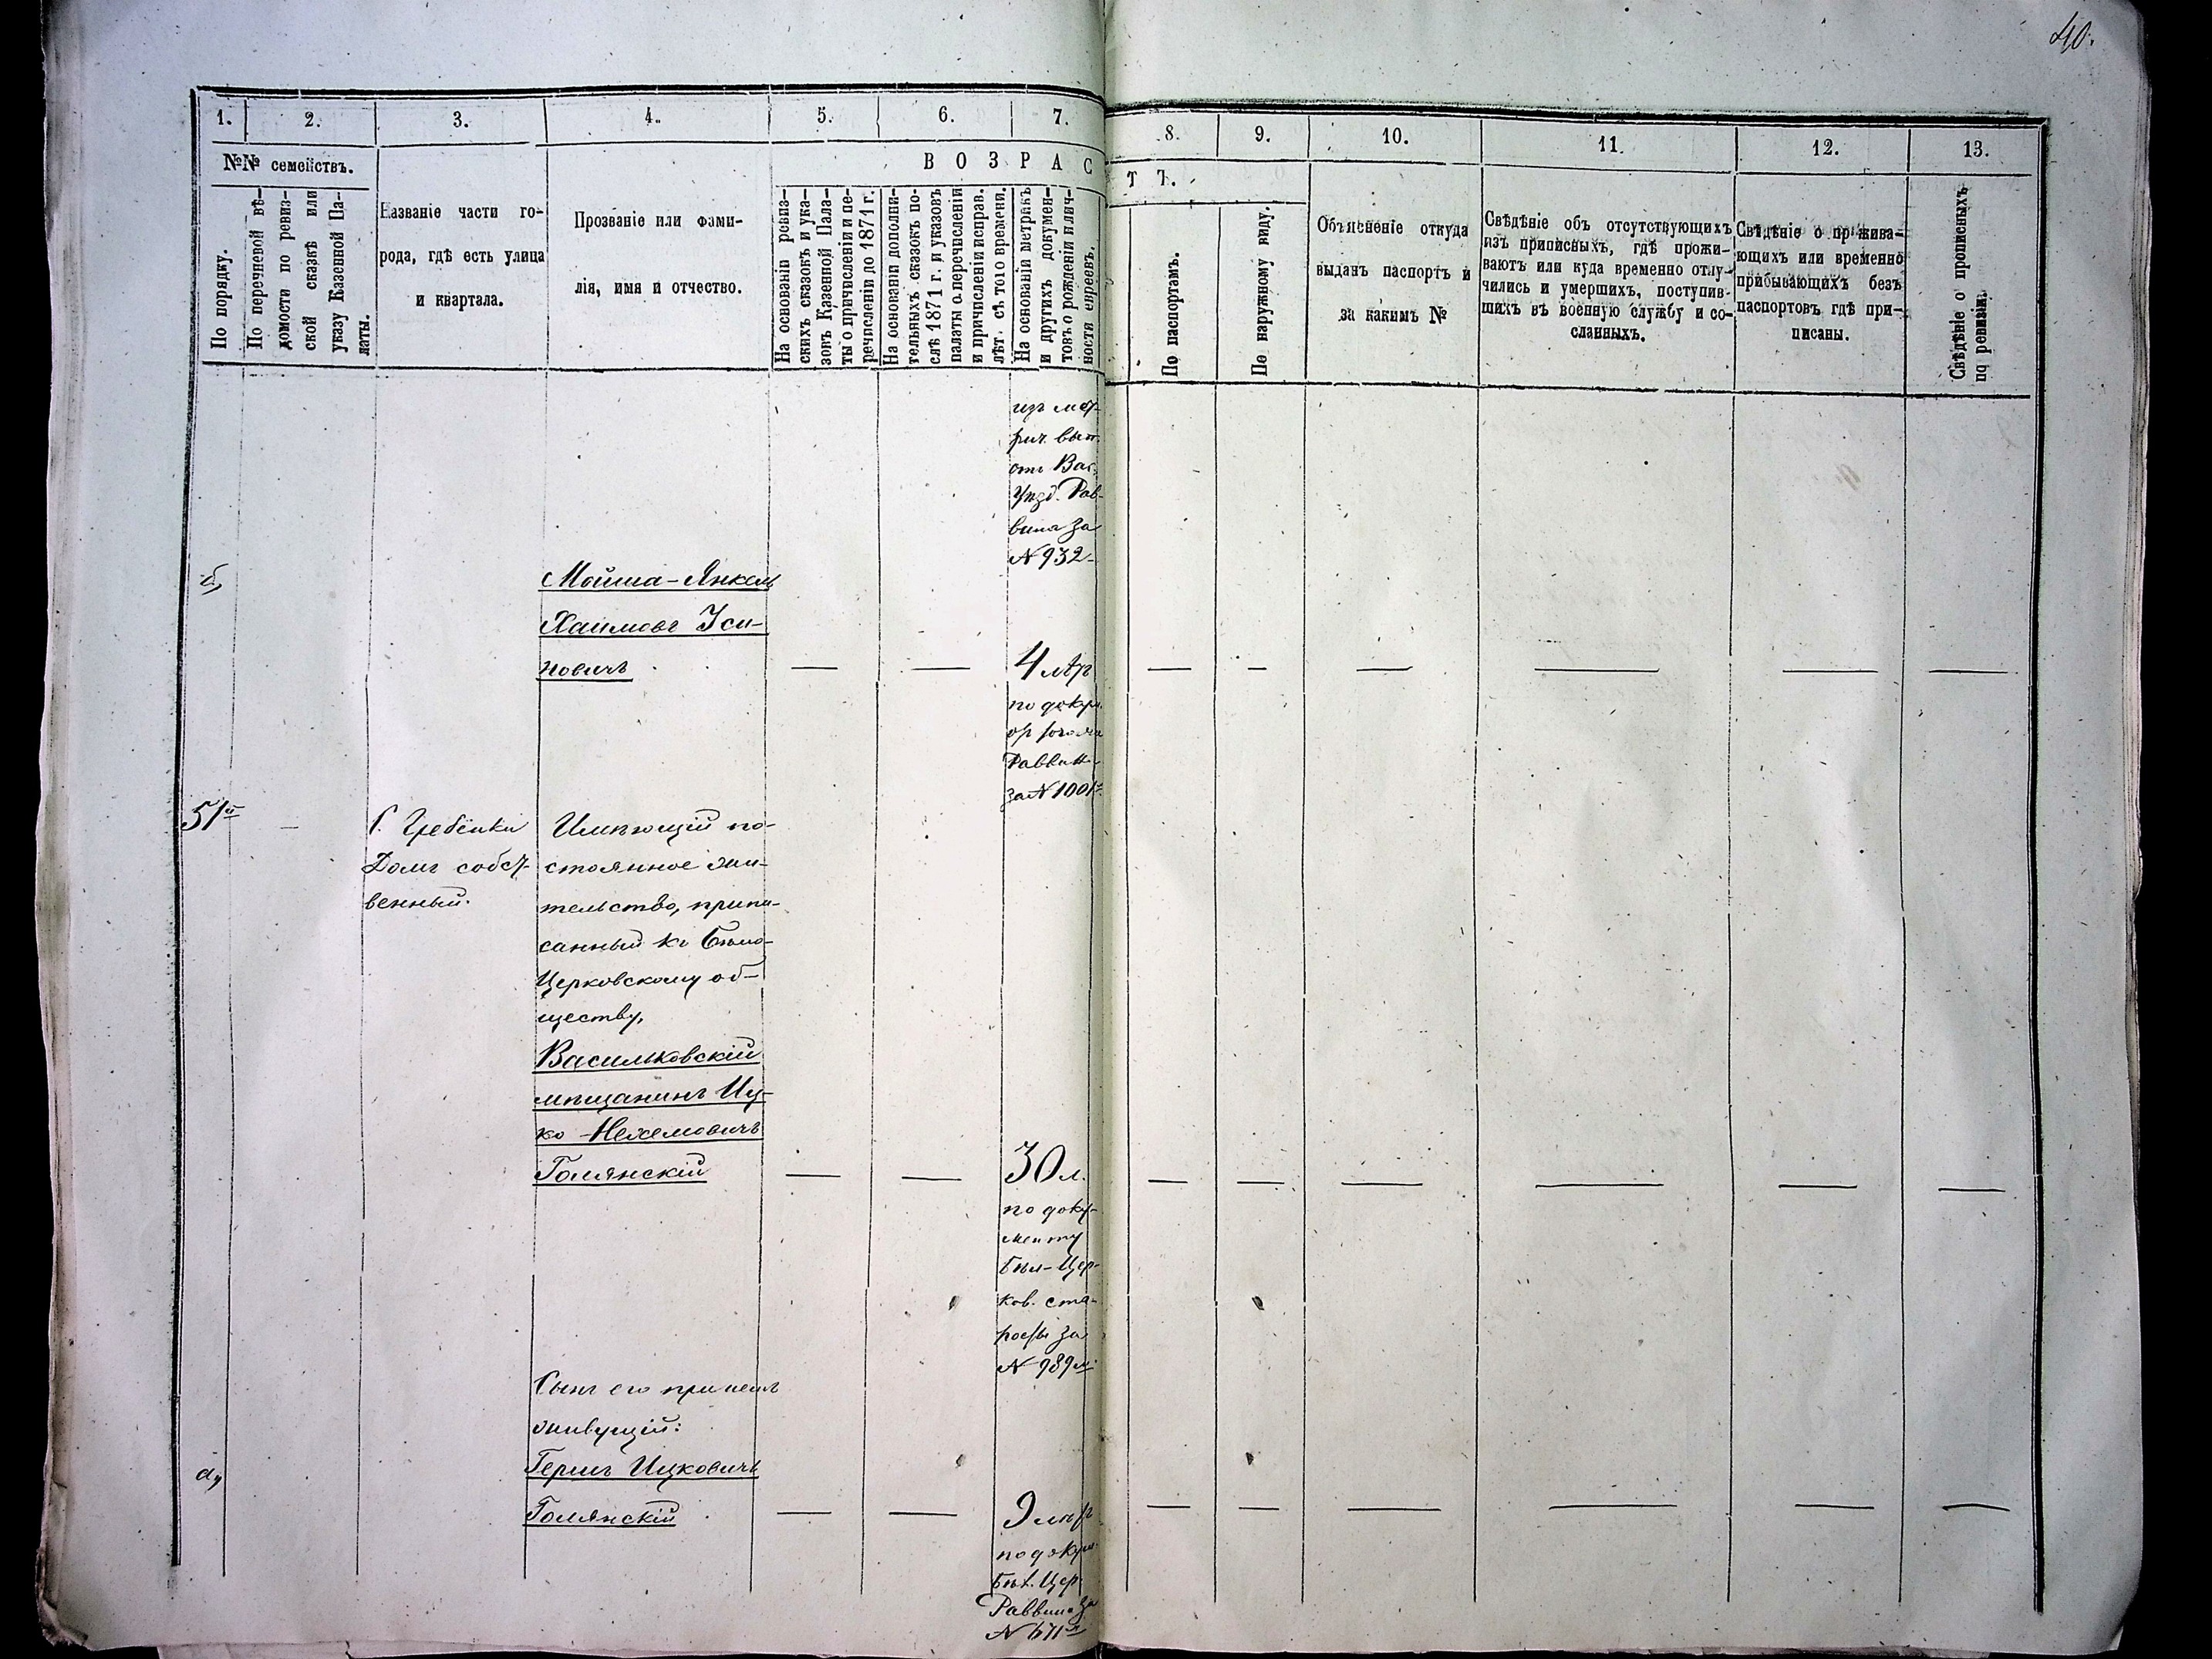 40.
1. 2. 3. 4. 5. 6. 7. 8. 9. 10. 11. 12. 13.
№№ семействъ.
ВОЗРАСТЪ.
По порядку.
По перечневой вѣ-
домости по ревиз-
ской сказкѣ или
указу Казенной Па-
латы.
Названіе части го-
рода, гдѣ есть улица
и квартала.
Прозваніе или фами-
лія, имя и отчество.
На основаніи ревиз-
скихъ сказокъ и ука-
зовъ Казенной Пала-
ты о причисленіи и пе-
речисленіи до 1871 г.
На основаніи дополни-
тельныхъ сказокъ по-
слѣ 1871 г. и указовъ
палаты о перечисленіи
и причисленіи исправ.
лѣт. съ того времени.
На основаніи метрикъ
и другихъ докумен-
товъ о рожденіи и лич-
ности евреевъ.
По паспортамъ.
По наружному виду.
Объясненіе откуда
выданъ паспортъ и
за какимъ №
Свѣдѣніе объ отсутствующихъ
изъ приписныхъ, гдѣ прожи-
ваютъ или куда временно отлу-
чились и умершихъ, поступив-
шихъ въ военную службу и со-
сланныхъ.
Свѣдѣніе о прожива-
ющихъ или временно
прибывающихъ безъ
паспортовъ гдѣ при-
писаны.
Свѣдѣніе о прописныхъ
по ревизіи.
изъ мет-
рич. вып.
отъ Вас.
Уѣзд. Рав-
вина за
№ 932
б,
Мойша-Янкель
Хаимовъ Уси-
новичъ
—
—
4 лѣтъ
—
—
—
—
—
—
по докум.
Раввин
за № 1001
51й
—
С. Гребёнки
Домъ собст-
венный.
Имѣющій по-
стоянное жи-
тельство, припи-
санный къ Бѣло-
Церковскому об-
ществу,
Васильковскій
мѣщанинъ Иц-
ко -Нехемовичъ
Голянскій
—
—
30 л.
—
—
—
—
—
—
по доку-
менту
Бѣл-Цер-
ков. ста-
росты за
№ 989м
Сынъ его при немъ
живущій:
а,
Гершъ Ицковичъ
Голянскій
—
—
9 лѣтъ
—
—
—
—
—
—
по докум.
Бѣл. Цер
Раввина за
№ 671